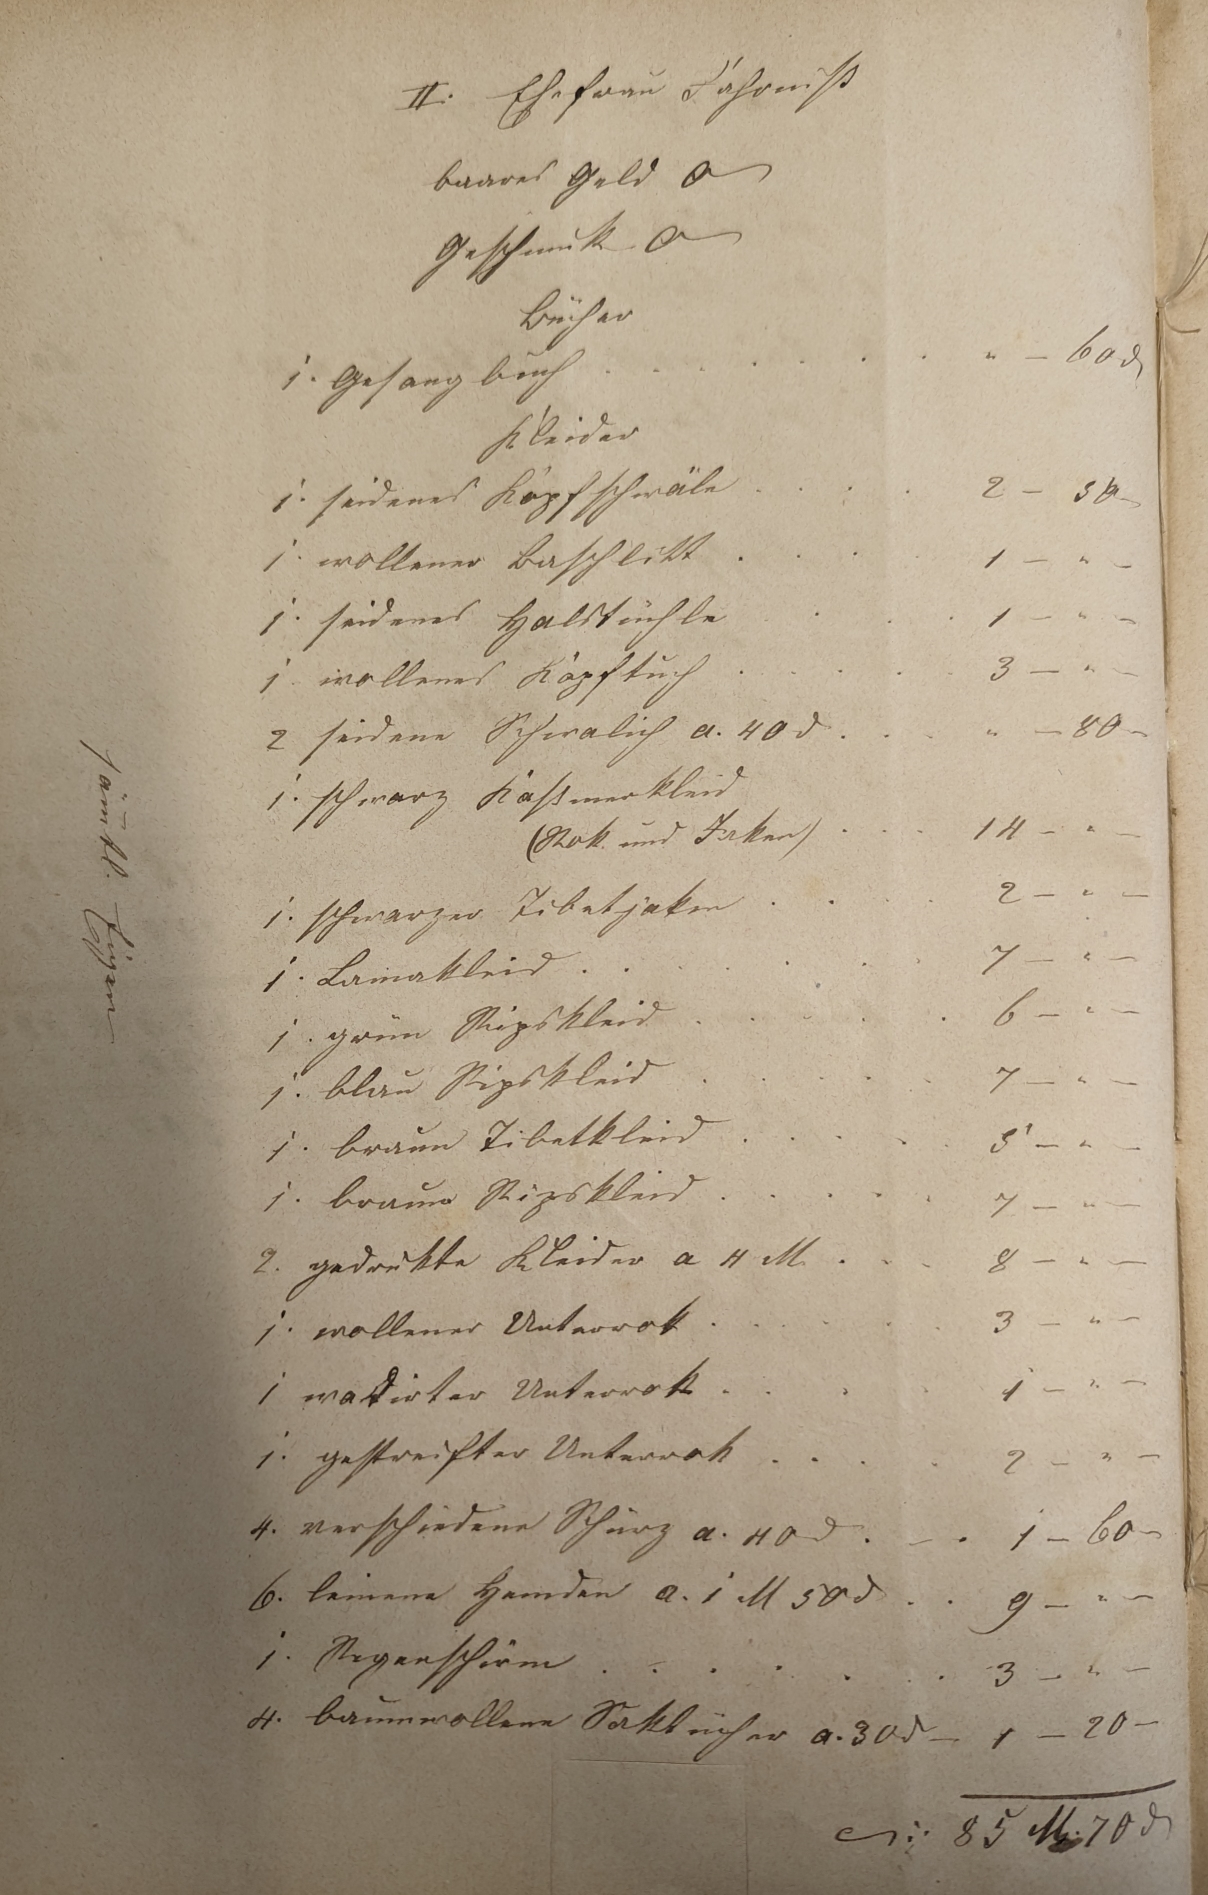 II. Ehefrau Fahrniß
baares Geld 0
Geschmuk 0
Bücher
1. Gesangbuch . . . . . . " — 60 ₰
Kleider
1. seidenes Kopfschwäle . . . . 2 — 50 —
1. wollener Baschlikk . . . . 1 — " —
1. seidenes Halstüchle . . . . 1 — " —
1. wollenes Kopftuch . . . . 3 — " —
2 seidene Schwalich a. 40 ₰ . . . " — 80 —
1. schwarz Kaßmerkleid
(Rok und Jaken) . . . 14 — " —
1. schwarzer Tibetjaken . . . . 2 — " —
1. Lamakleid . . . . . . 7 — " —
1. grün Ripskleid . . . . . 6 — " —
1. blau Ripskleid . . . . . 7 — " —
1. braun Tibetkleid . . . . 5 — " —
1. braun Ripskleid . . . . . 7 — " —
2. gedrukte Kleider a 4 M. . . . 8 — " —
1. wollener Unterrok . . . . . 3 — " —
1 wattirter Unterrok . . . . 1 — " —
1. gestreifter Unterrok . . . . 2 — " —
4. verschiedene Schürz a. 40 ₰ . — . 1 — 60 —
6. leinene Hemden a. 1 M 50 ₰ . . 9 — " —
1. Regenschirm . . . . . . 3 — " —
4. baumwollene Saktücher a. 30 ₰ — 1 — 20 —
85 M. 70 ₰